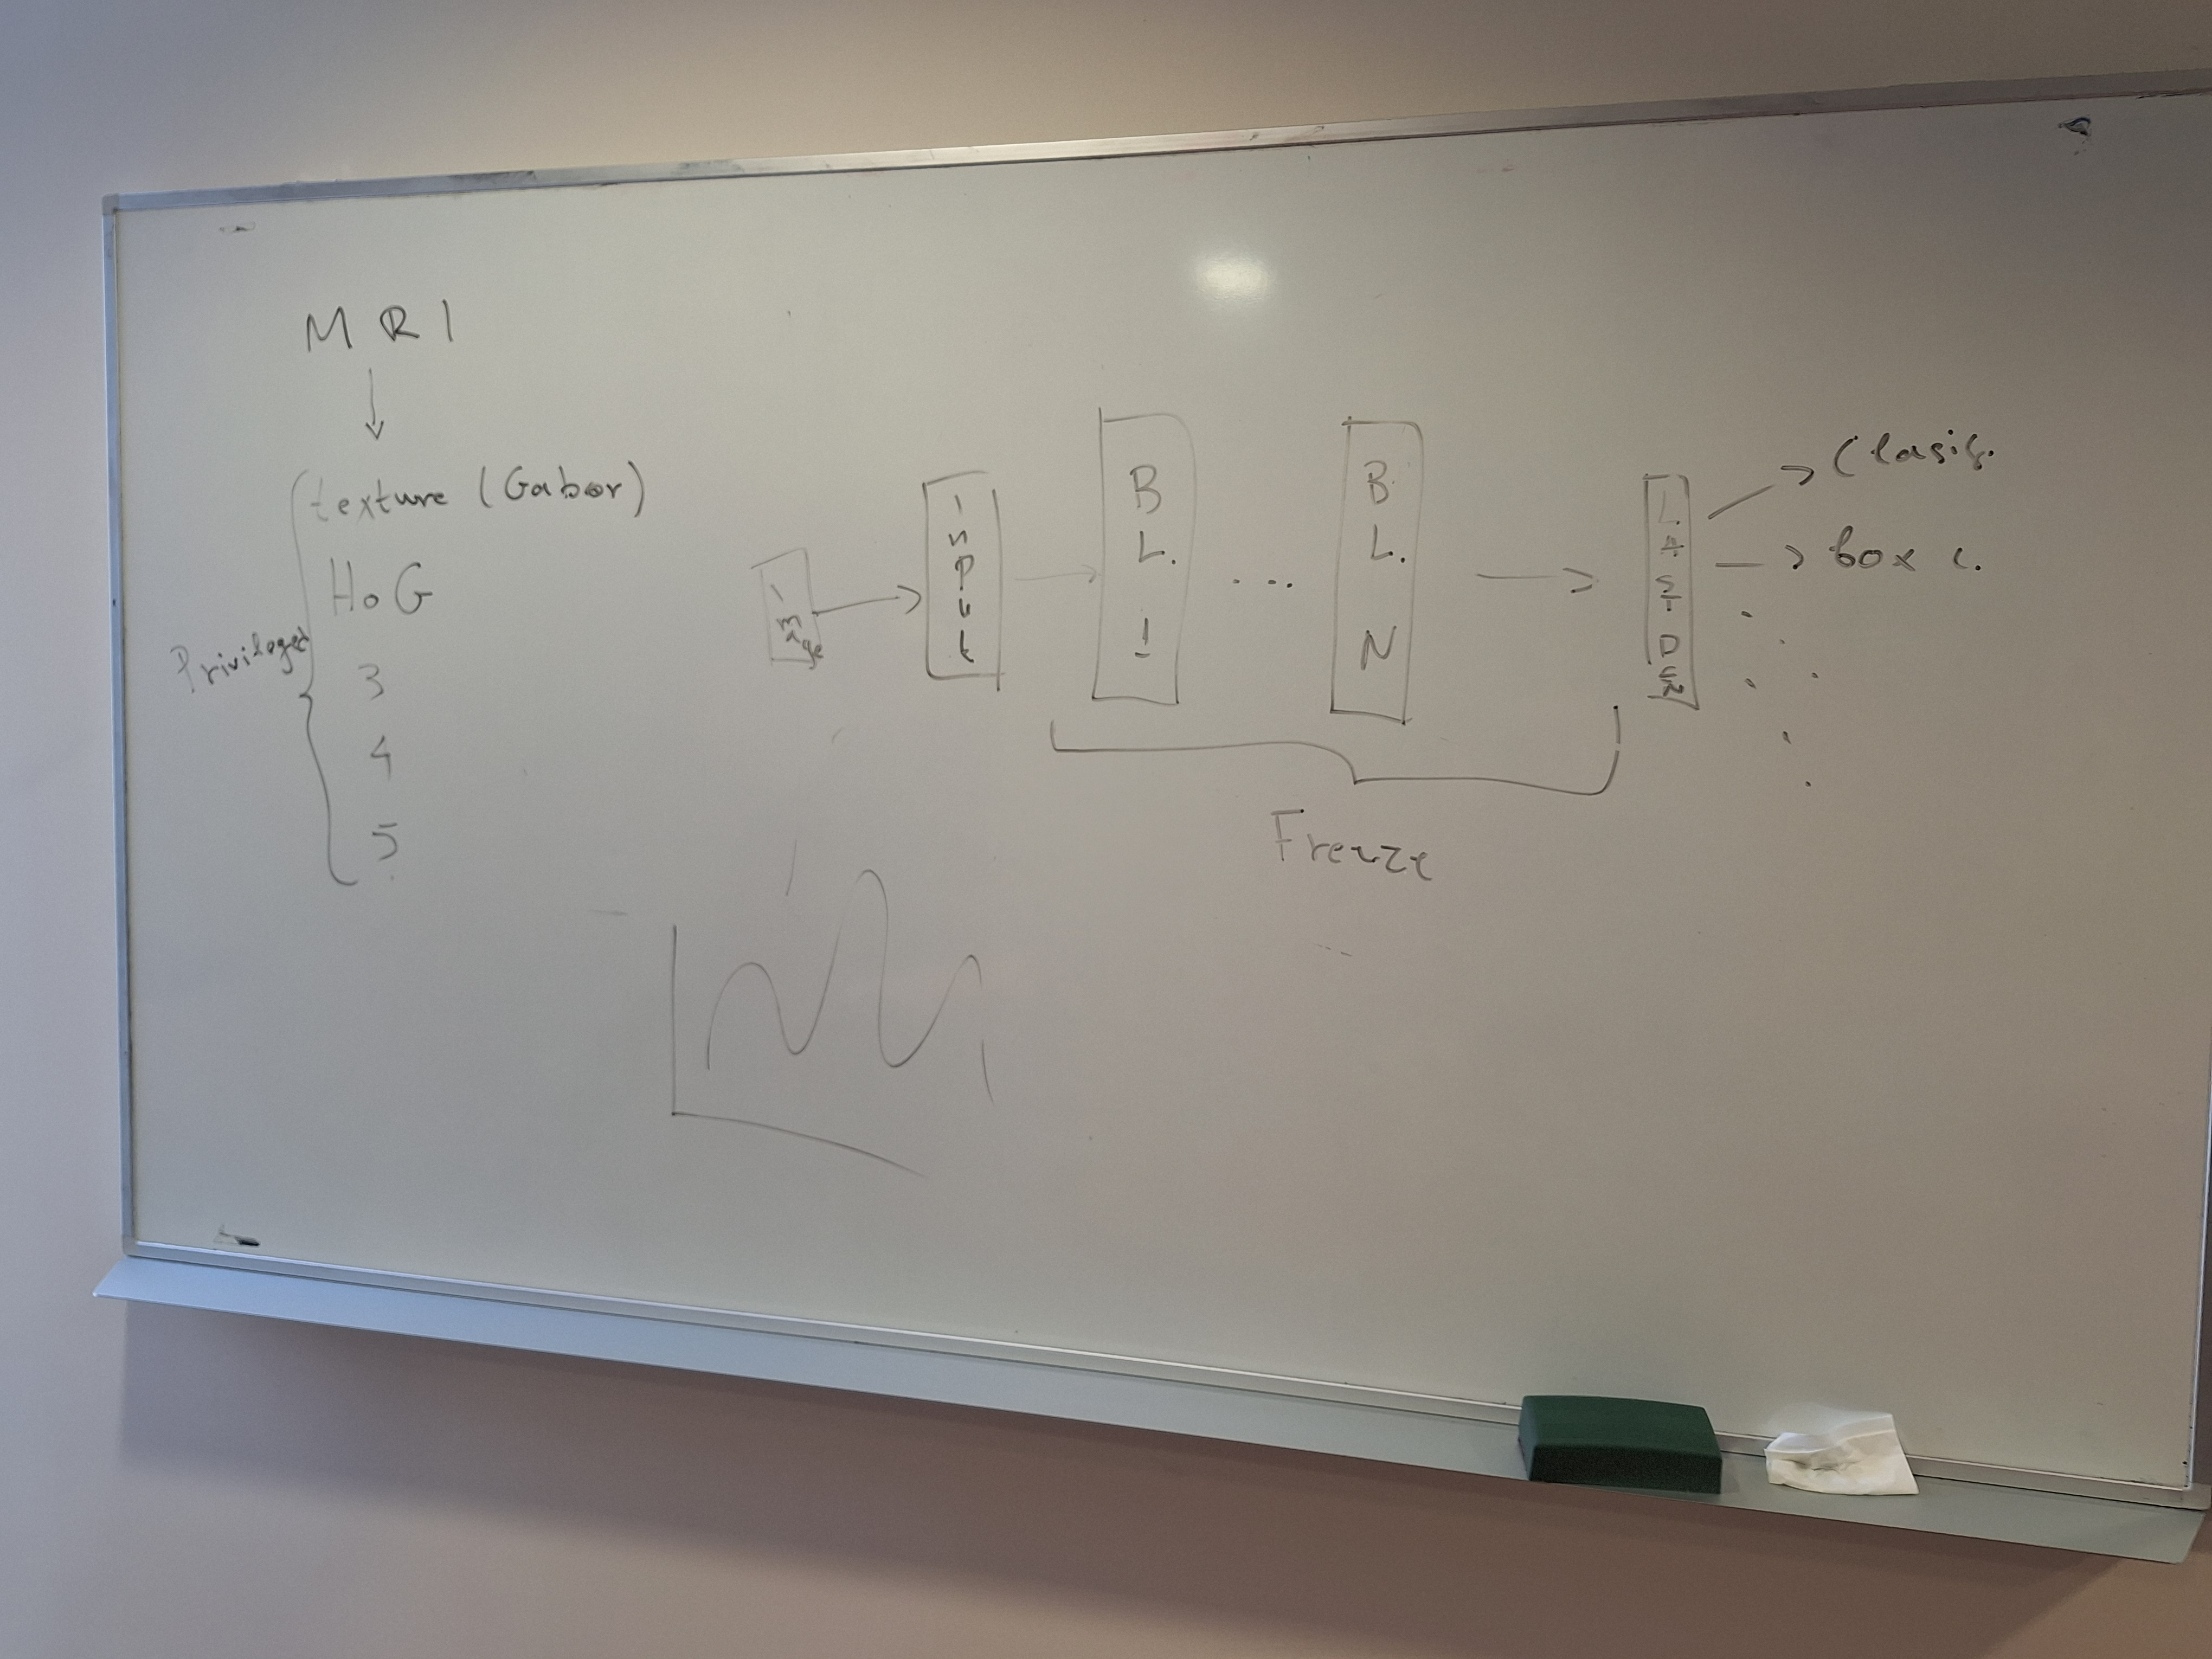 MRI
texture (Gabor)
HoG
3
4
5
Privileged
Image
Input
BL. 1
...
BL. N
LAST
Clasif.
box c.
Freeze